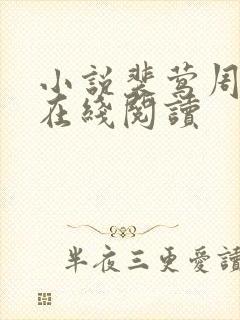 小說裴鶯周
在綫閱讀
半夜三更愛讀